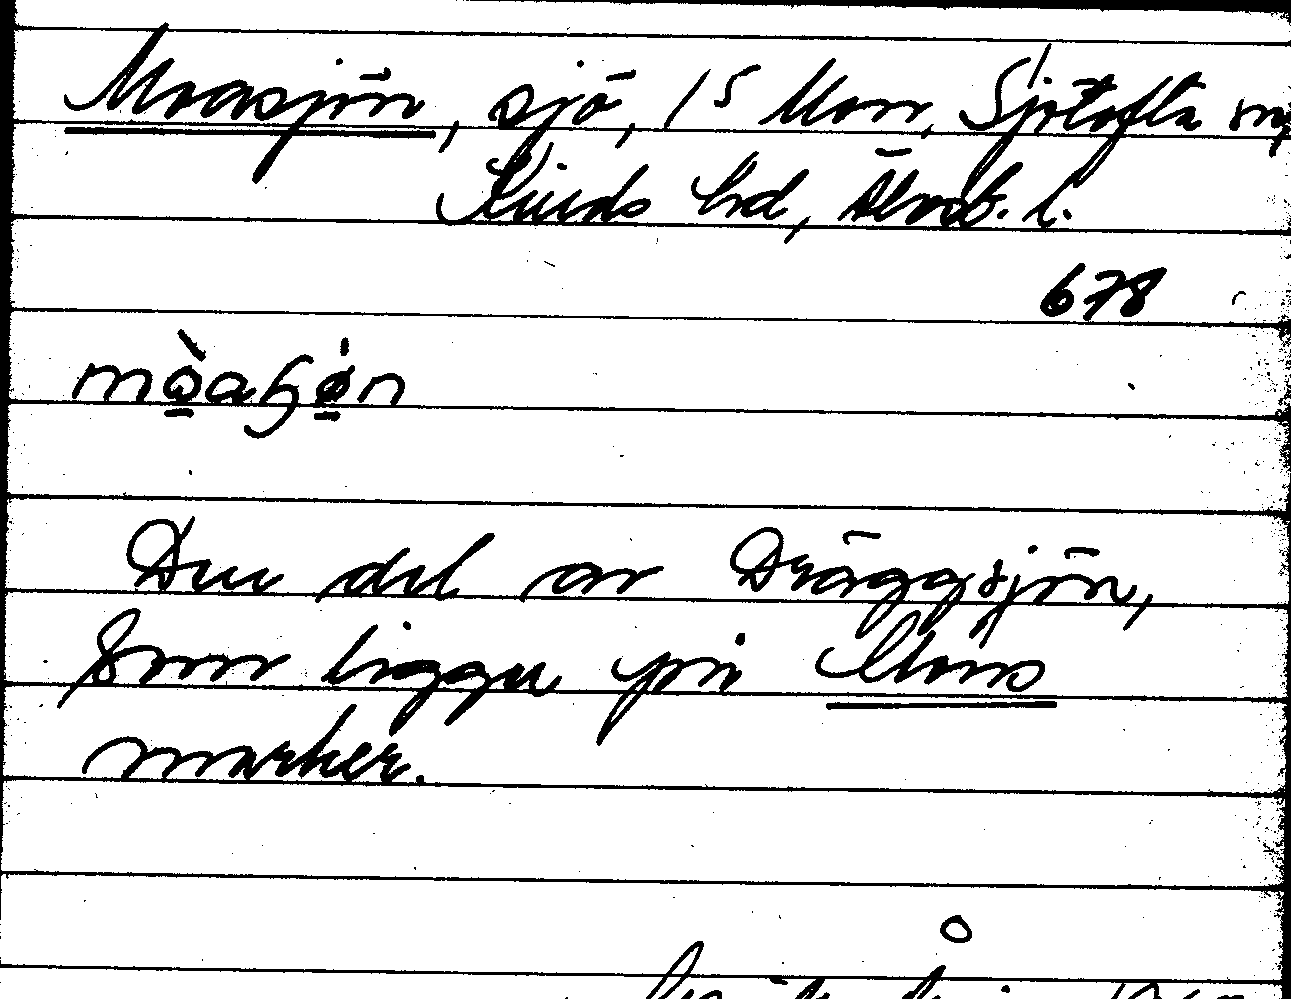 Moasjön, sjö, 15 Mon, Sjötofta sn,
Kinds hd, Älvsb. l.
678
mò̱aʃø̱n
Den del av Dräggsjön,
som ligger på Mons
marker.